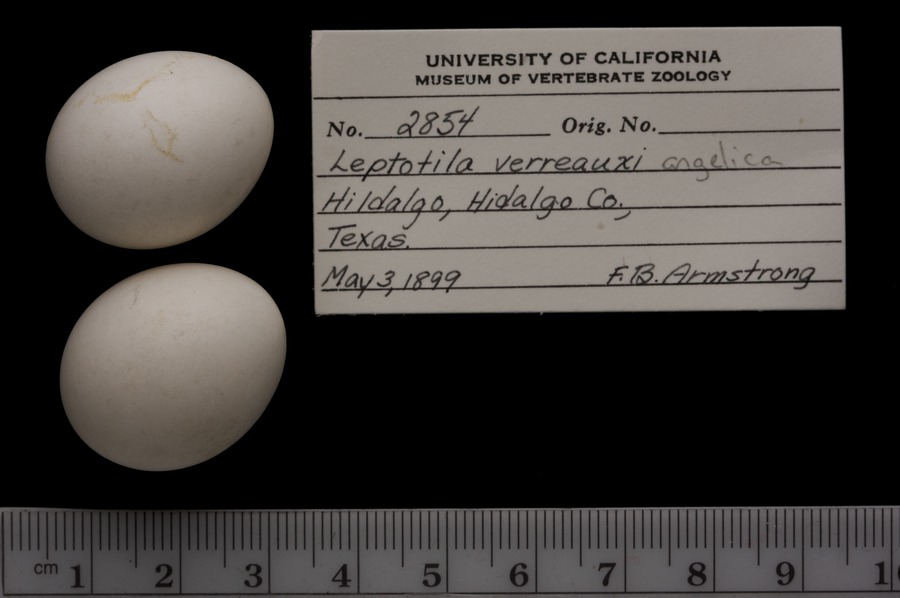 UNIVERSITY OF CALIFORNIA
MUSEUM OF VERTEBRATE ZOOLOGY
No. 2854 Orig. No.
Leptotila verreauxi angelica
Hildalgo, Hidalgo Co.,
Texas.
May 3, 1899 F.B. Armstrong
cm 1 2 3 4 5 6 7 8 9 1